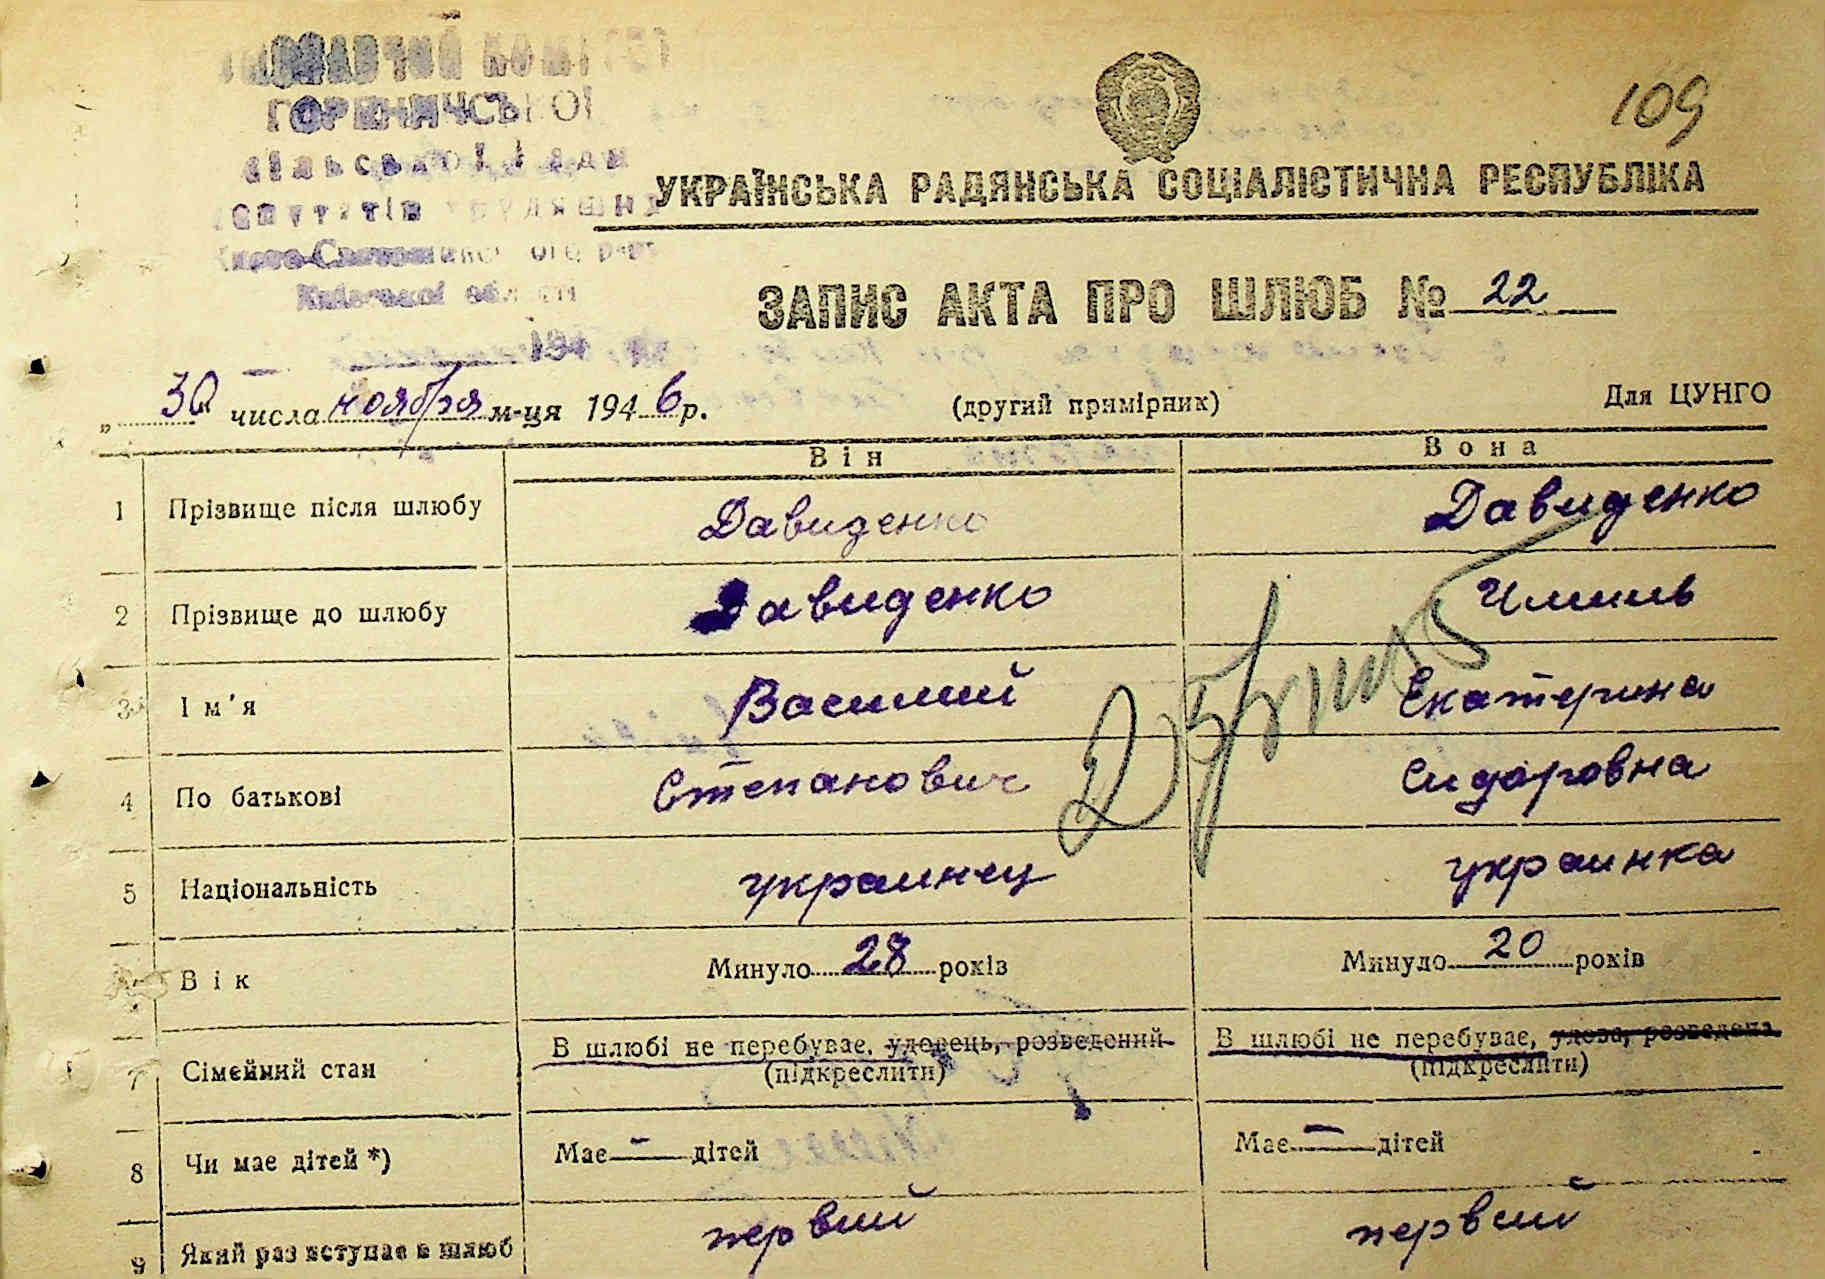 109
ГОРЕНИЧСЬКОЇ
сільської Ради
УКРАЇНСЬКА РАДЯНСЬКА СОЦІАЛІСТИЧНА РЕСПУБЛІКА
Київської області
ЗАПИС АКТА ПРО ШЛЮБ № 22
„30“ числа ноября м-ця 1946 р. (другий примірник) Для ЦУНГО
Він Вона
1 Прізвище після шлюбу Давиденко Давиденко
2 Прізвище до шлюбу Давиденко
3 Ім'я Василий Екатерина
4 По батькові Степанович Сидоровна
5 Національність украинец украинка
Вік Минуло 28 років Минуло 20 років
7 Сімейний стан В шлюбі не перебуває, удовець, розведений В шлюбі не перебуває, удова, розведена
(підкреслити) (підкреслити)
8 Чи має дітей *) Має — дітей Має — дітей
9 Який раз вступає в шлюб первий первий